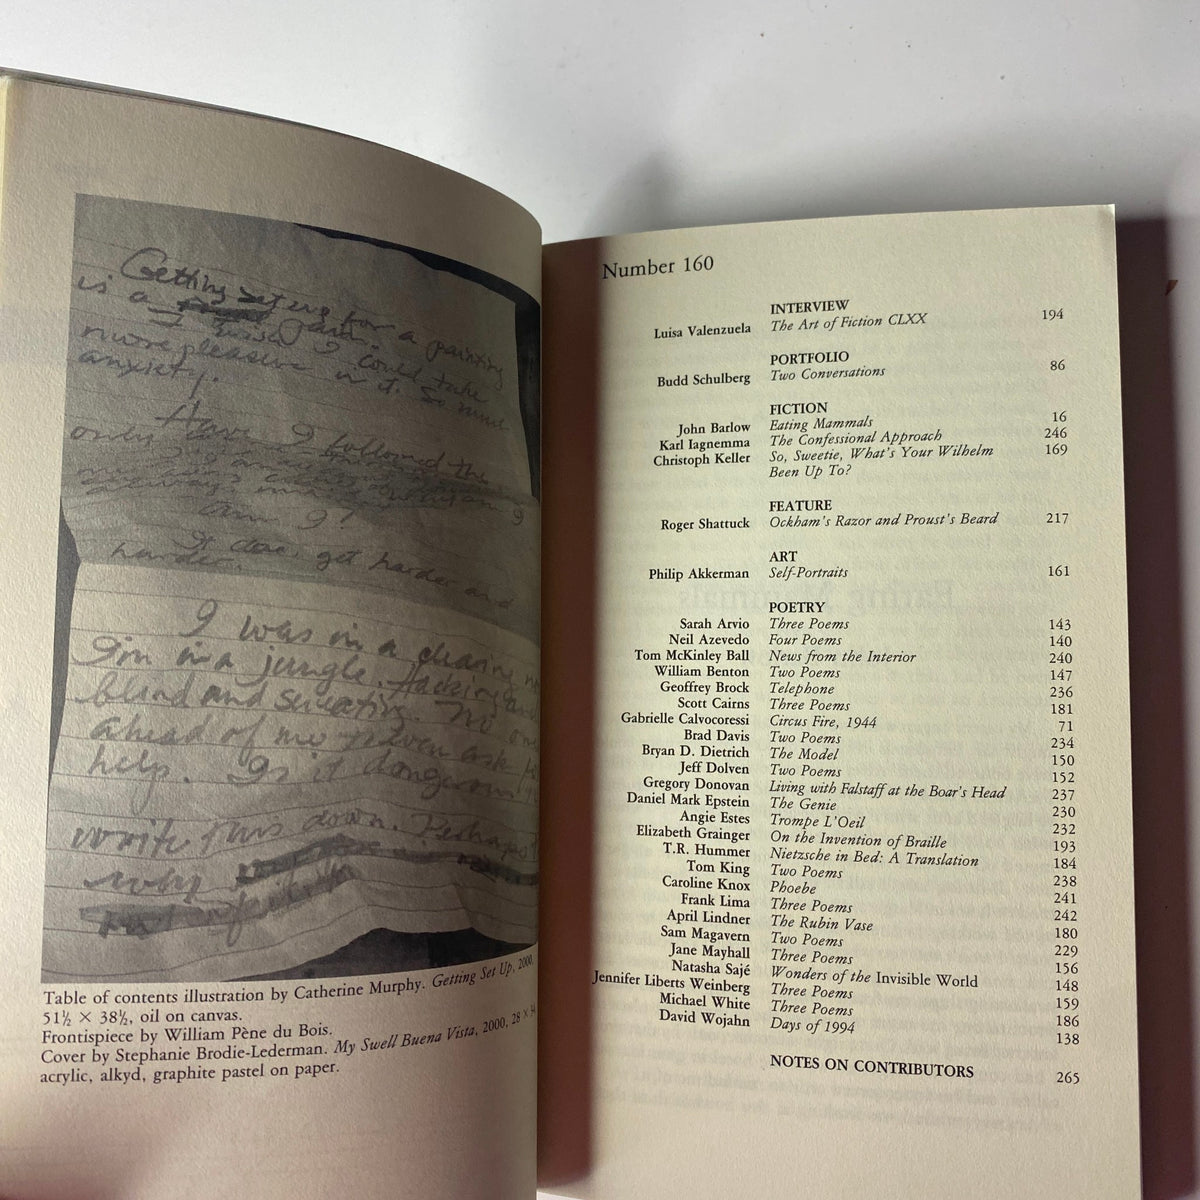 Getting set up for a painting
is a pain.
I wish I could take
more pleasure in it. So much
anxiety.
Have I followed the
only
always
am I?
It does, get harder and
harder.
I was in a clearing
I'm in a jungle. Hacking
blind and sweating. No one
ahead of me even ask
help. Is it dangerous
write this down. Perhaps
why
Table of contents illustration by Catherine Murphy. Getting Set Up, 2000.
51½ × 38½, oil on canvas.
Frontispiece by William Pène du Bois.
Cover by Stephanie Brodie-Lederman. My Swell Buena Vista, 2000, 28 ×
acrylic, alkyd, graphite pastel on paper.
Number 160
INTERVIEW
Luisa Valenzuela The Art of Fiction CLXX 194
PORTFOLIO
Budd Schulberg Two Conversations 86
FICTION
John Barlow Eating Mammals 16
Karl Iagnemma The Confessional Approach 246
Christoph Keller So, Sweetie, What's Your Wilhelm 169
Been Up To?
FEATURE
Roger Shattuck Ockham's Razor and Proust's Beard 217
ART
Philip Akkerman Self-Portraits 161
POETRY
Sarah Arvio Three Poems 143
Neil Azevedo Four Poems 140
Tom McKinley Ball News from the Interior 240
William Benton Two Poems 147
Geoffrey Brock Telephone 236
Scott Cairns Three Poems 181
Gabrielle Calvocoressi Circus Fire, 1944 71
Brad Davis Two Poems 234
Bryan D. Dietrich The Model 150
Jeff Dolven Two Poems 152
Gregory Donovan Living with Falstaff at the Boar's Head 237
Daniel Mark Epstein The Genie 230
Angie Estes Trompe L'Oeil 232
Elizabeth Grainger On the Invention of Braille 193
T.R. Hummer Nietzsche in Bed: A Translation 184
Tom King Two Poems 238
Caroline Knox Phoebe 241
Frank Lima Three Poems 242
April Lindner The Rubin Vase 180
Sam Magavern Two Poems 229
Jane Mayhall Three Poems 156
Natasha Sajé Wonders of the Invisible World 148
Jennifer Liberts Weinberg Three Poems 159
Michael White Three Poems 186
David Wojahn Days of 1994 138
NOTES ON CONTRIBUTORS 265